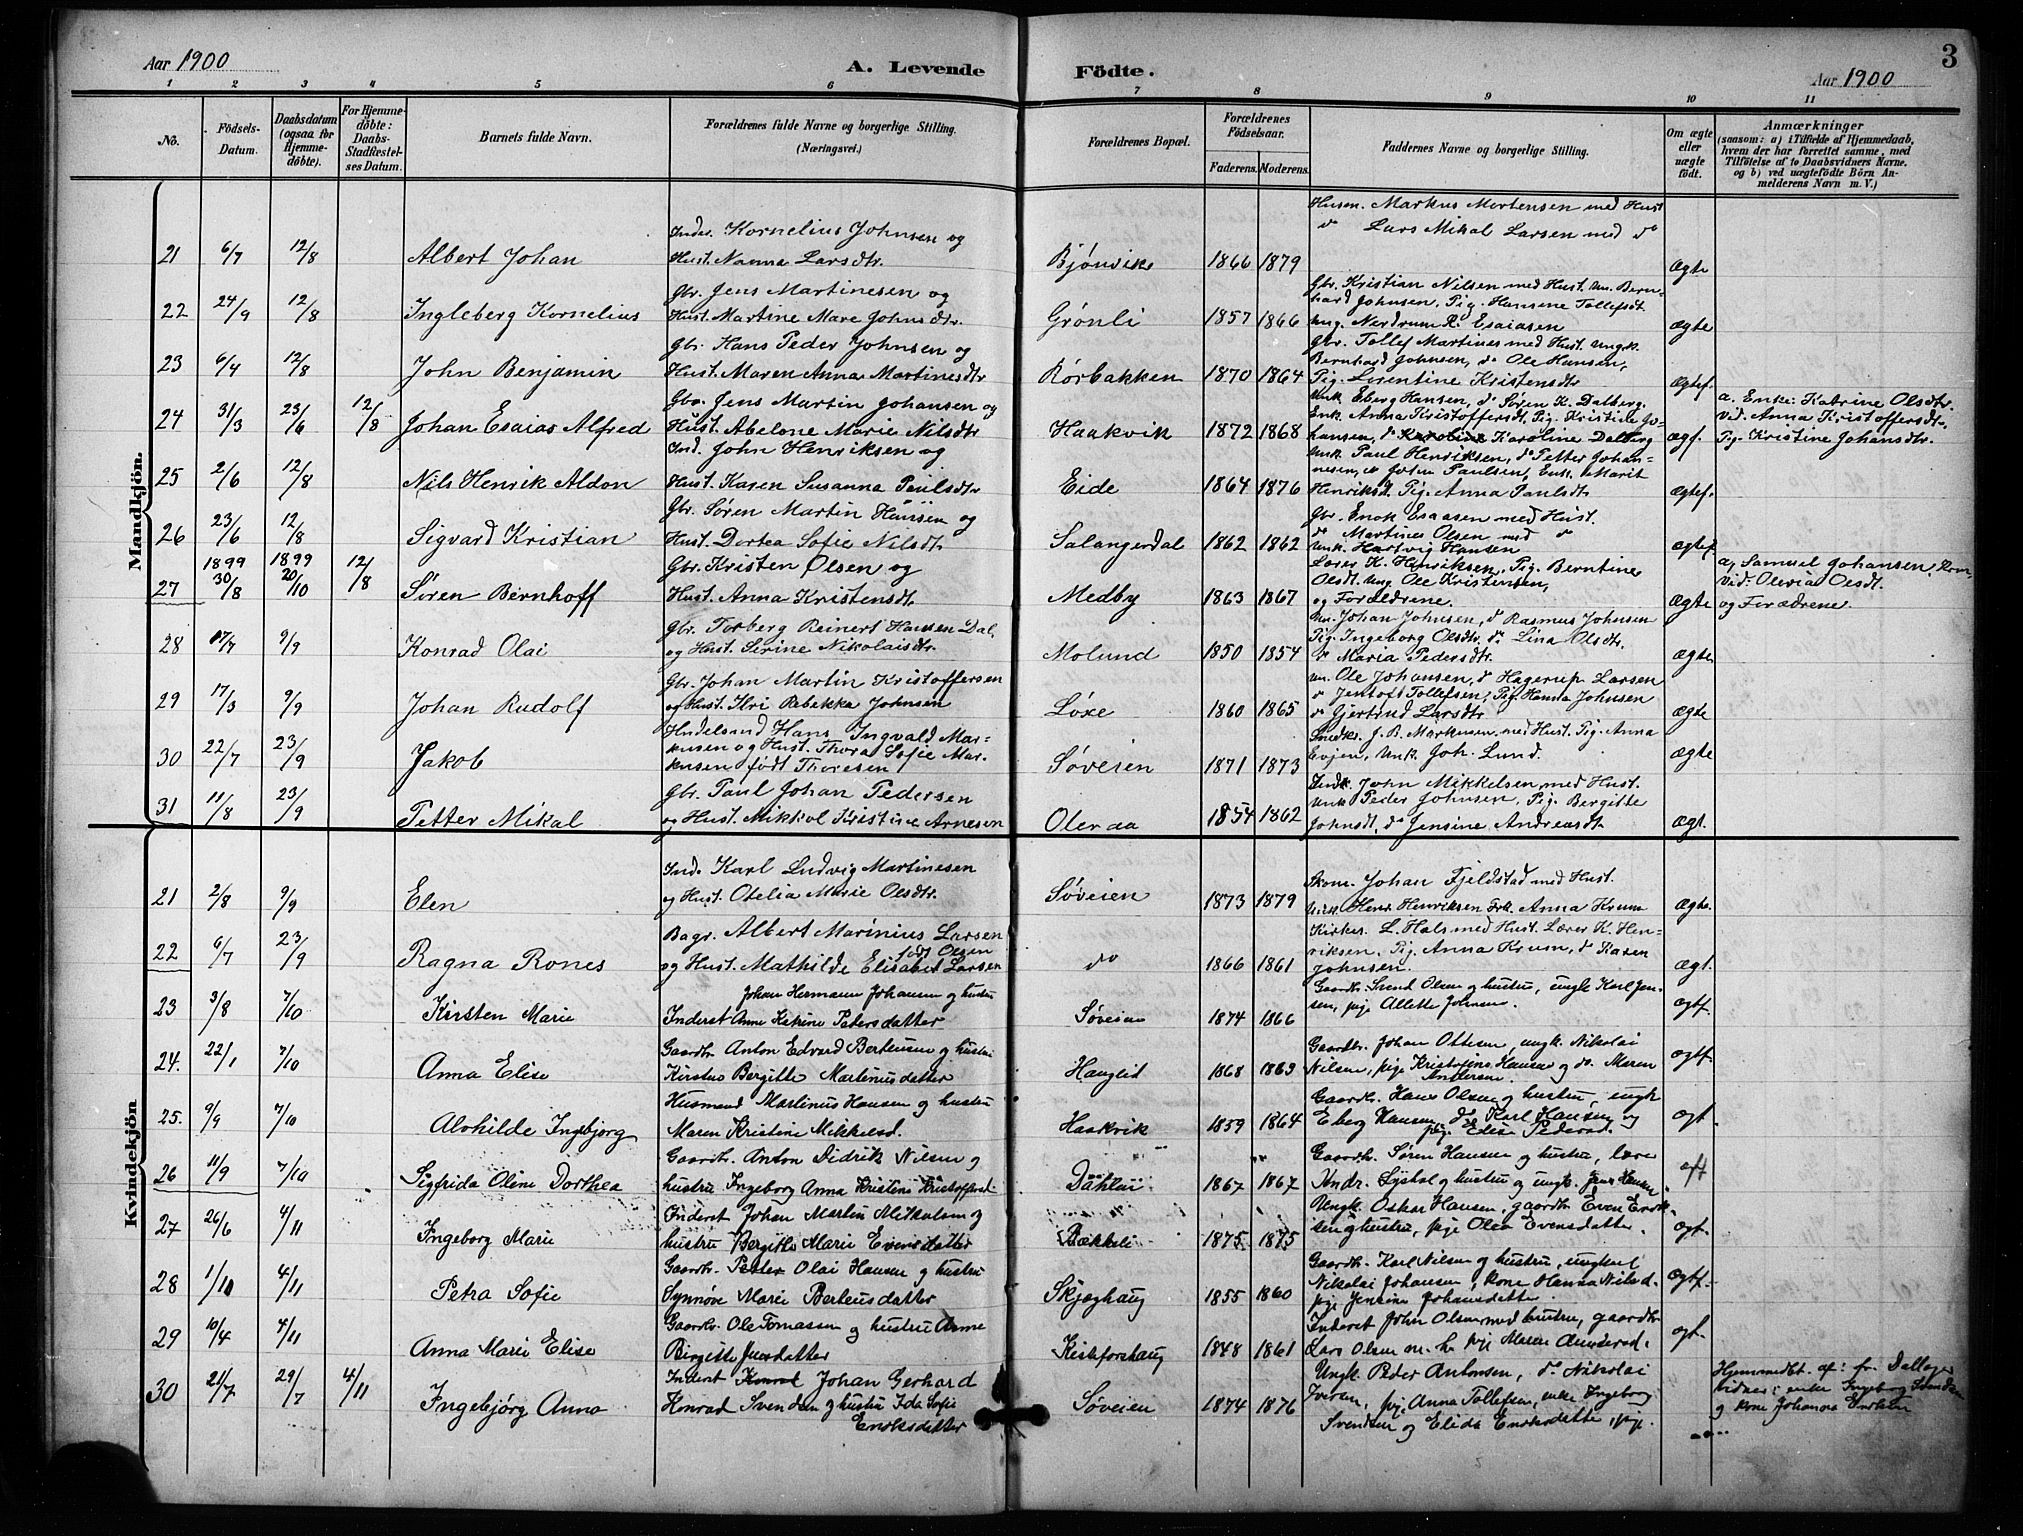 Aar 1900
A. Levende Födte.
Aar 1900
3
1 2 3 4 5 6 7 8 9 10 11
No.
Födsels-Datum.
Daabsdatum (ogsaa for Hjemme-döbte).
For Hjemme-döbte: Daabs-Stadfæstel-ses Datum.
Barnets fulde Navn.
Forældrenes fulde Navne og borgerlige Stilling. (Næringsvei.)
Forældrenes Bopæl.
Forældrenes Födselsaar.
Faderens. Moderens.
Faddernes Navne og borgerlige Stilling.
Om ægte eller uægte födt.
Anmærkninger
(saasom: a) i Tilfælde af Hjemmedaab,
hvem der har forrettet samme, med
Tilföielse af to Daabsvidners Navne,
og b) ved uægtefödte Börn An-
melderens Navn m. V.)
Mandkjön.
Husm. Markus Mortensen med Hust
do Lars Mikal Larsen med do
Inder. Kornelius Johnsen og
21 6/7 12/8 Albert Johan Hust. Nanna Larsdtr. Bjönvik 1866 1879 Ægte
Gbr. Jens Martinesen og
Gbr. Kristian Nilsen med Hust. Un. Bern-
hard Johnsen, Pig. Hansene Tollefsdt.
22 24/9 12/8 Ingleberg Kornelius Hust. Martine Mare Johnsdtr. Grönli 1857 1866 Ung. Nerdrum R. Esaiasen ægte
Gbr. Hans Peder Johnsen og
Gbr. Tollef Martines med Hust. Ungk.
Bernhard Johnsen, do Ole Hansen,
23 6/4 12/8 John Benjamin Hust. Maren Anna Martinesdtr Rörbakken 1870 1864 Pig. Lorentine Kristensdtr Ægtef.
Gbr. Jens Martin Johansen og
Unk Eberg Hansen, do Søren K. Dalberg.
Enk. Anna Kristoffersdt, Pig. Kristine Jo-
a. Enke: Katrine Olsdtr.
Vid. Anna Kristoffersdt.,
24 31/3 23/6 12/8 Johan Esaias Alfred Hust. Abelone Marie Nilsdtr Haakvik 1872 1868 hansen, do Karoline Dalberg ægf. Pig. Kristine Johansdtr.
Ind. John Henriksen og
Unk Paul Henriksen, do Petter Johan-
nesen, do John Paulsen, Enk. Marit
25 2/6 12/8 Nils Henrik Aldon Hust. Karen Susanna Paulsdtr Eide 1864 1876 Henriksd. Pig. Anna Paulsdt. Ægtef.
Gbr. Søren Martin Hansen og
Gbr. Enok Esaasen med Hust.
do Martines Olsen med do
26 23/6 12/8 Sigvard Kristian Hust. Dortea Sofie Nilsdt. Salangerdal 1862 1862 Unk. Hartvig Hansen ægtef.
1899 1899
Gbr. Kristen Olsen og
Lærer K. Henriksen, Pig. Berntine
Olsdt. Ung. Ole Kristensen,
a, Samuel Johansen
Vid: Olevia Olsdt.
27 30/8 20/10 12/8 Søren Bernhoff Hust. Anna Kristensdt. Medby 1863 1867 og Forældrene. Ægte og Forældrene.
Gbr. Torberg Reinert Hansen Dal,
Un. Johan Johnsen, do Rasmus Johnsen
Pig. Ingeborg Olsdtr. do Lina Olsdtr.
28 17/7 9/9 Konrad Olai og Hust. Serine Nikolaisdtr. Molund 1850 1854 do Maria Pedersdtr. Ægte
Gbr. Johan Martin Kristoffersen
Un. Ole Johansen, do Hagerup Larsen
do Jentoft Tollefsen, Pig. Hanna Johnsen
29 17/3 9/9 Johan Rudolf og Hust. Rebekka Johnsen Løxe 1860 1865 do Gjertrud Larsdtr Ægte
Handelsmand Hans Ingvald Mar-
kusen og Hust. Thora Sofie Mar-
Smedks. J. B. Markusen med Hust. Pig. Anna
30 22/7 23/9 Jakob kusen født Thoresen Søveien 1871 1873 Evjen, Unk. Joh. Lund. Ægte
Gbr. Paul Johan Pedersen
Indk. John Mikkelsen med Hust.
Unk Peder Johnsen, Pig. Bergitte
31 11/8 23/9 Petter Mikal og Hust. Kristine Arnesen 1854 1862 Johnsdt, do Jensine Andreasdt. Ægt.
Kvindekjön
Ind. Karl Ludvig Martinesen
Skom. Johan Fjeldstad med Hust.
21 2/8 9/9 Elen og Hust. Otelia Marie Olsdtr. Søveien 1873 1879 Unk. Henr Henriksen Frk. Anna Krum Ægte.
Bagr. Albert Marinius Larsen
Kirkes. L. Hals med Hust. Lærer K. Hen-
født Olsen
riksen, Pig. Anna Krum, do Kasen
22 6/7 23/9 Ragna Rones og Hust. Mathilde Elisabet Larsen do 1866 1861 Johnsen. Ægt.
Johan Hermann Johansen og hustru
Gaardbr. Svend Olsen og hustru, ungk Karl Jen-
23 3/8 7/10 Kirsten Marie Inderst Anne Petersdatter Søveien 1874 1866 sen, pige Allette Johnsen. ægtf.
Gaardbr. Anton Edvard Bertensen og hustru
Gaardbr. Johan Ottesen, ungk. Nikolai
24. 22/1 7/10 Anna Elise Bergitte Martinusdatter Hanglid 1868 1869 Nilsen, pige Kristofine Hansen og do. Maren
Andersen ægtf.
Husmand Martinus Hansen og hustru
Gaardbr. Hans Olsen og hustru, ungk
25. 9/9 7/10 Alvhilde Ingebjørg Maren Kristine Mikkelsd. Haakvik 1859 1864 Eberg Hansen, do Karl Hansen og
pig. Elise Pedersd. ægt.
Gaardbr. Anton Didrik Nilsen og
Gaardbr. Søren Hansen og hustru, lærer
26 11/9 7/10 Sigfrida Oline Dorthea hustru Ingeborg Anna Kristine Kristoffersd. 1867 1867 Andr. og hustru og ungk. Jens Hansen
Inderst Johan Martin Mikkelsen og
Ungk. Oskar Hansen, gaardbr Even Enok-
27 26/6 4/11 Ingeborg Marie hustru Bergitte Marie Evensdatter Bakkeli 1875 1875 sen og hustru, pige Olea Evensdatter. ægt.
Gaardbr. Petter Olai Hansen og hustru
Gaardbr. Karl Nilsen og hustru, ungkarl
Nikolai Johansen, kone Hanna Nilsd.
28 1/10 4/11 Petra Sofie Synnöve Marie Berteusdatter Skjæghaug 1855 1860 pige Jensine Johansdatter ægtf.
Gaardbr. Ole Tomassen og hustru Anne
Inderst John Olsen med hustru, gaardbr
29 10/4 4/11 Anna Marie Elise Birgitte Jensdatter 1848 1861 Lars Olsen m. h. pige Maren Andersd. ægt.
Inderst Johan Gerhard
Ungk Peder Antonsen, do Nikolai
Hjemmedbt. af: fr. Dallager
30 21/7 29/7 4/11 Ingebjørg Anna Konrad Svendsen og hustru Ida Sofie Søveien 1874 1876 Iversen, pig. Anna Tollefsen, enke Ingeborg
vidner: enke Ingeborg Svendsen
Enoksdatter
Svendsen og Elida Enoksdatter, pige.
og kone Johanna Enoksen